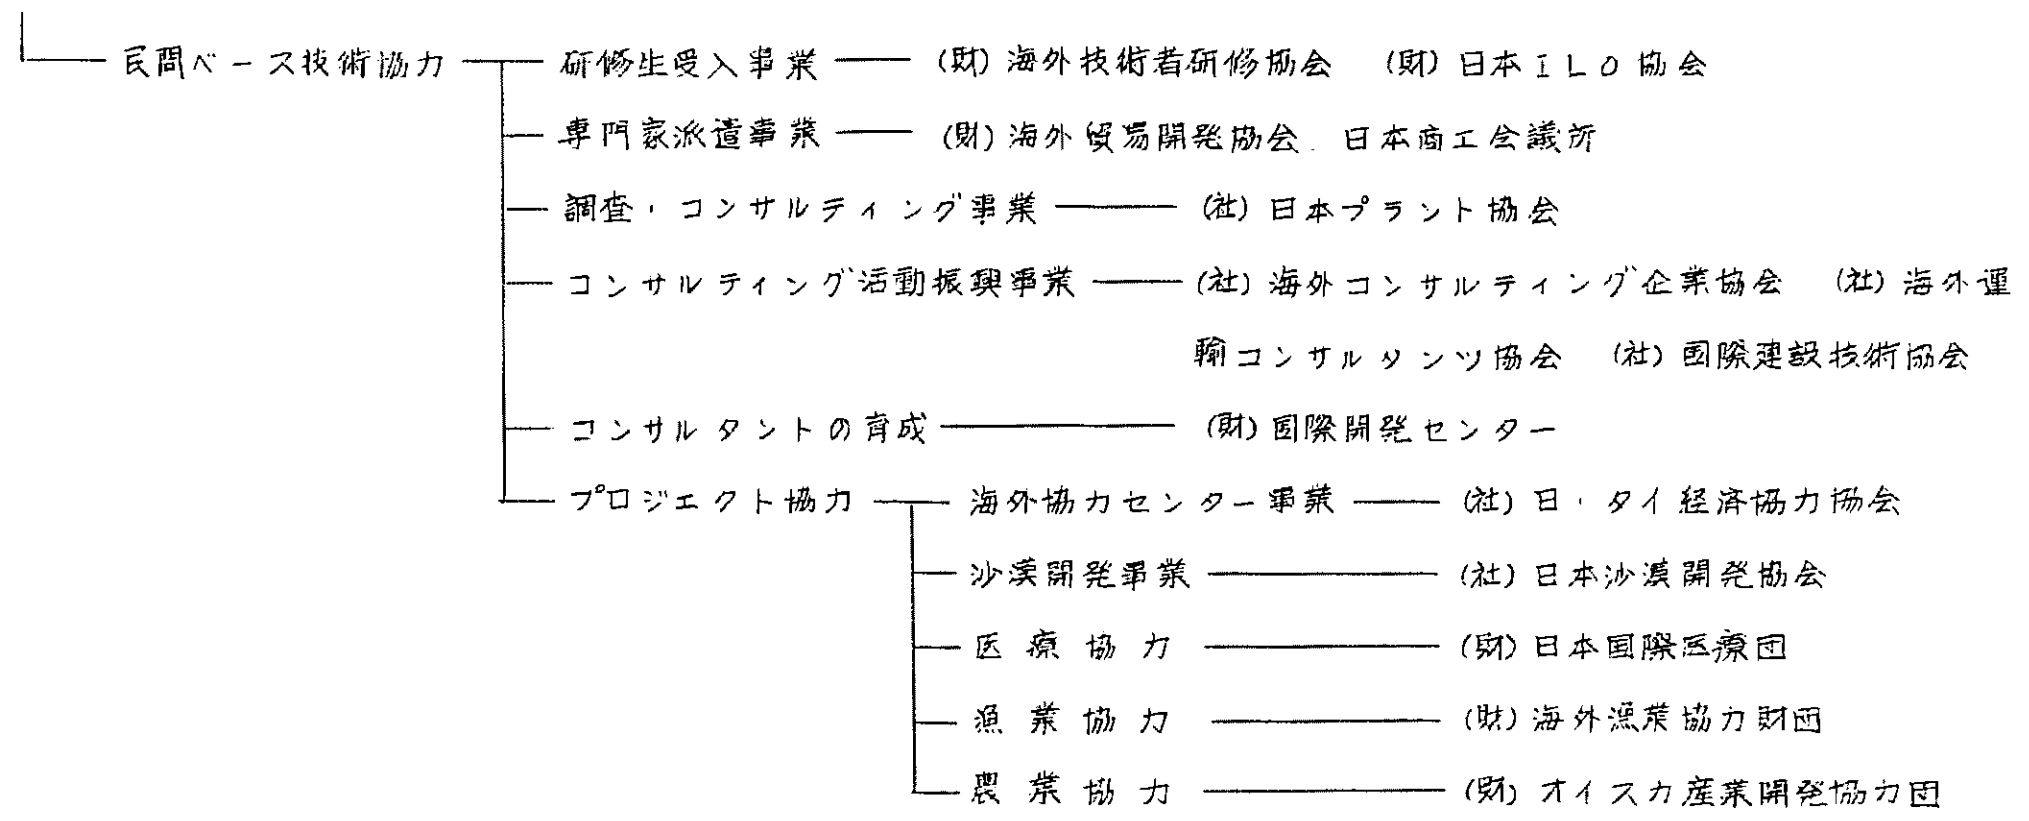 民間ベース技術協力 研修生受入事業 (財)海外技術者研修協会 (財)日本ILO協会
専門家派遣事業 (財)海外貿易開発協会、日本商工会議所
調査・コンサルティング事業 (社)日本プラント協会
コンサルティング活動振興事業 (社)海外コンサルティング企業協会 (社)海外運
輸コンサルタンツ協会 (社)国際建設技術協会
コンサルタントの育成 (財)国際開発センター
プロジェクト協力 海外協力センター事業 (社)日・タイ経済協力協会
沙漠開発事業 (社)日本沙漠開発協会
医療協力 (財)日本国際医療団
漁業協力 (財)海外漁業協力財団
農業協力 (財)オイスカ産業開発協力団